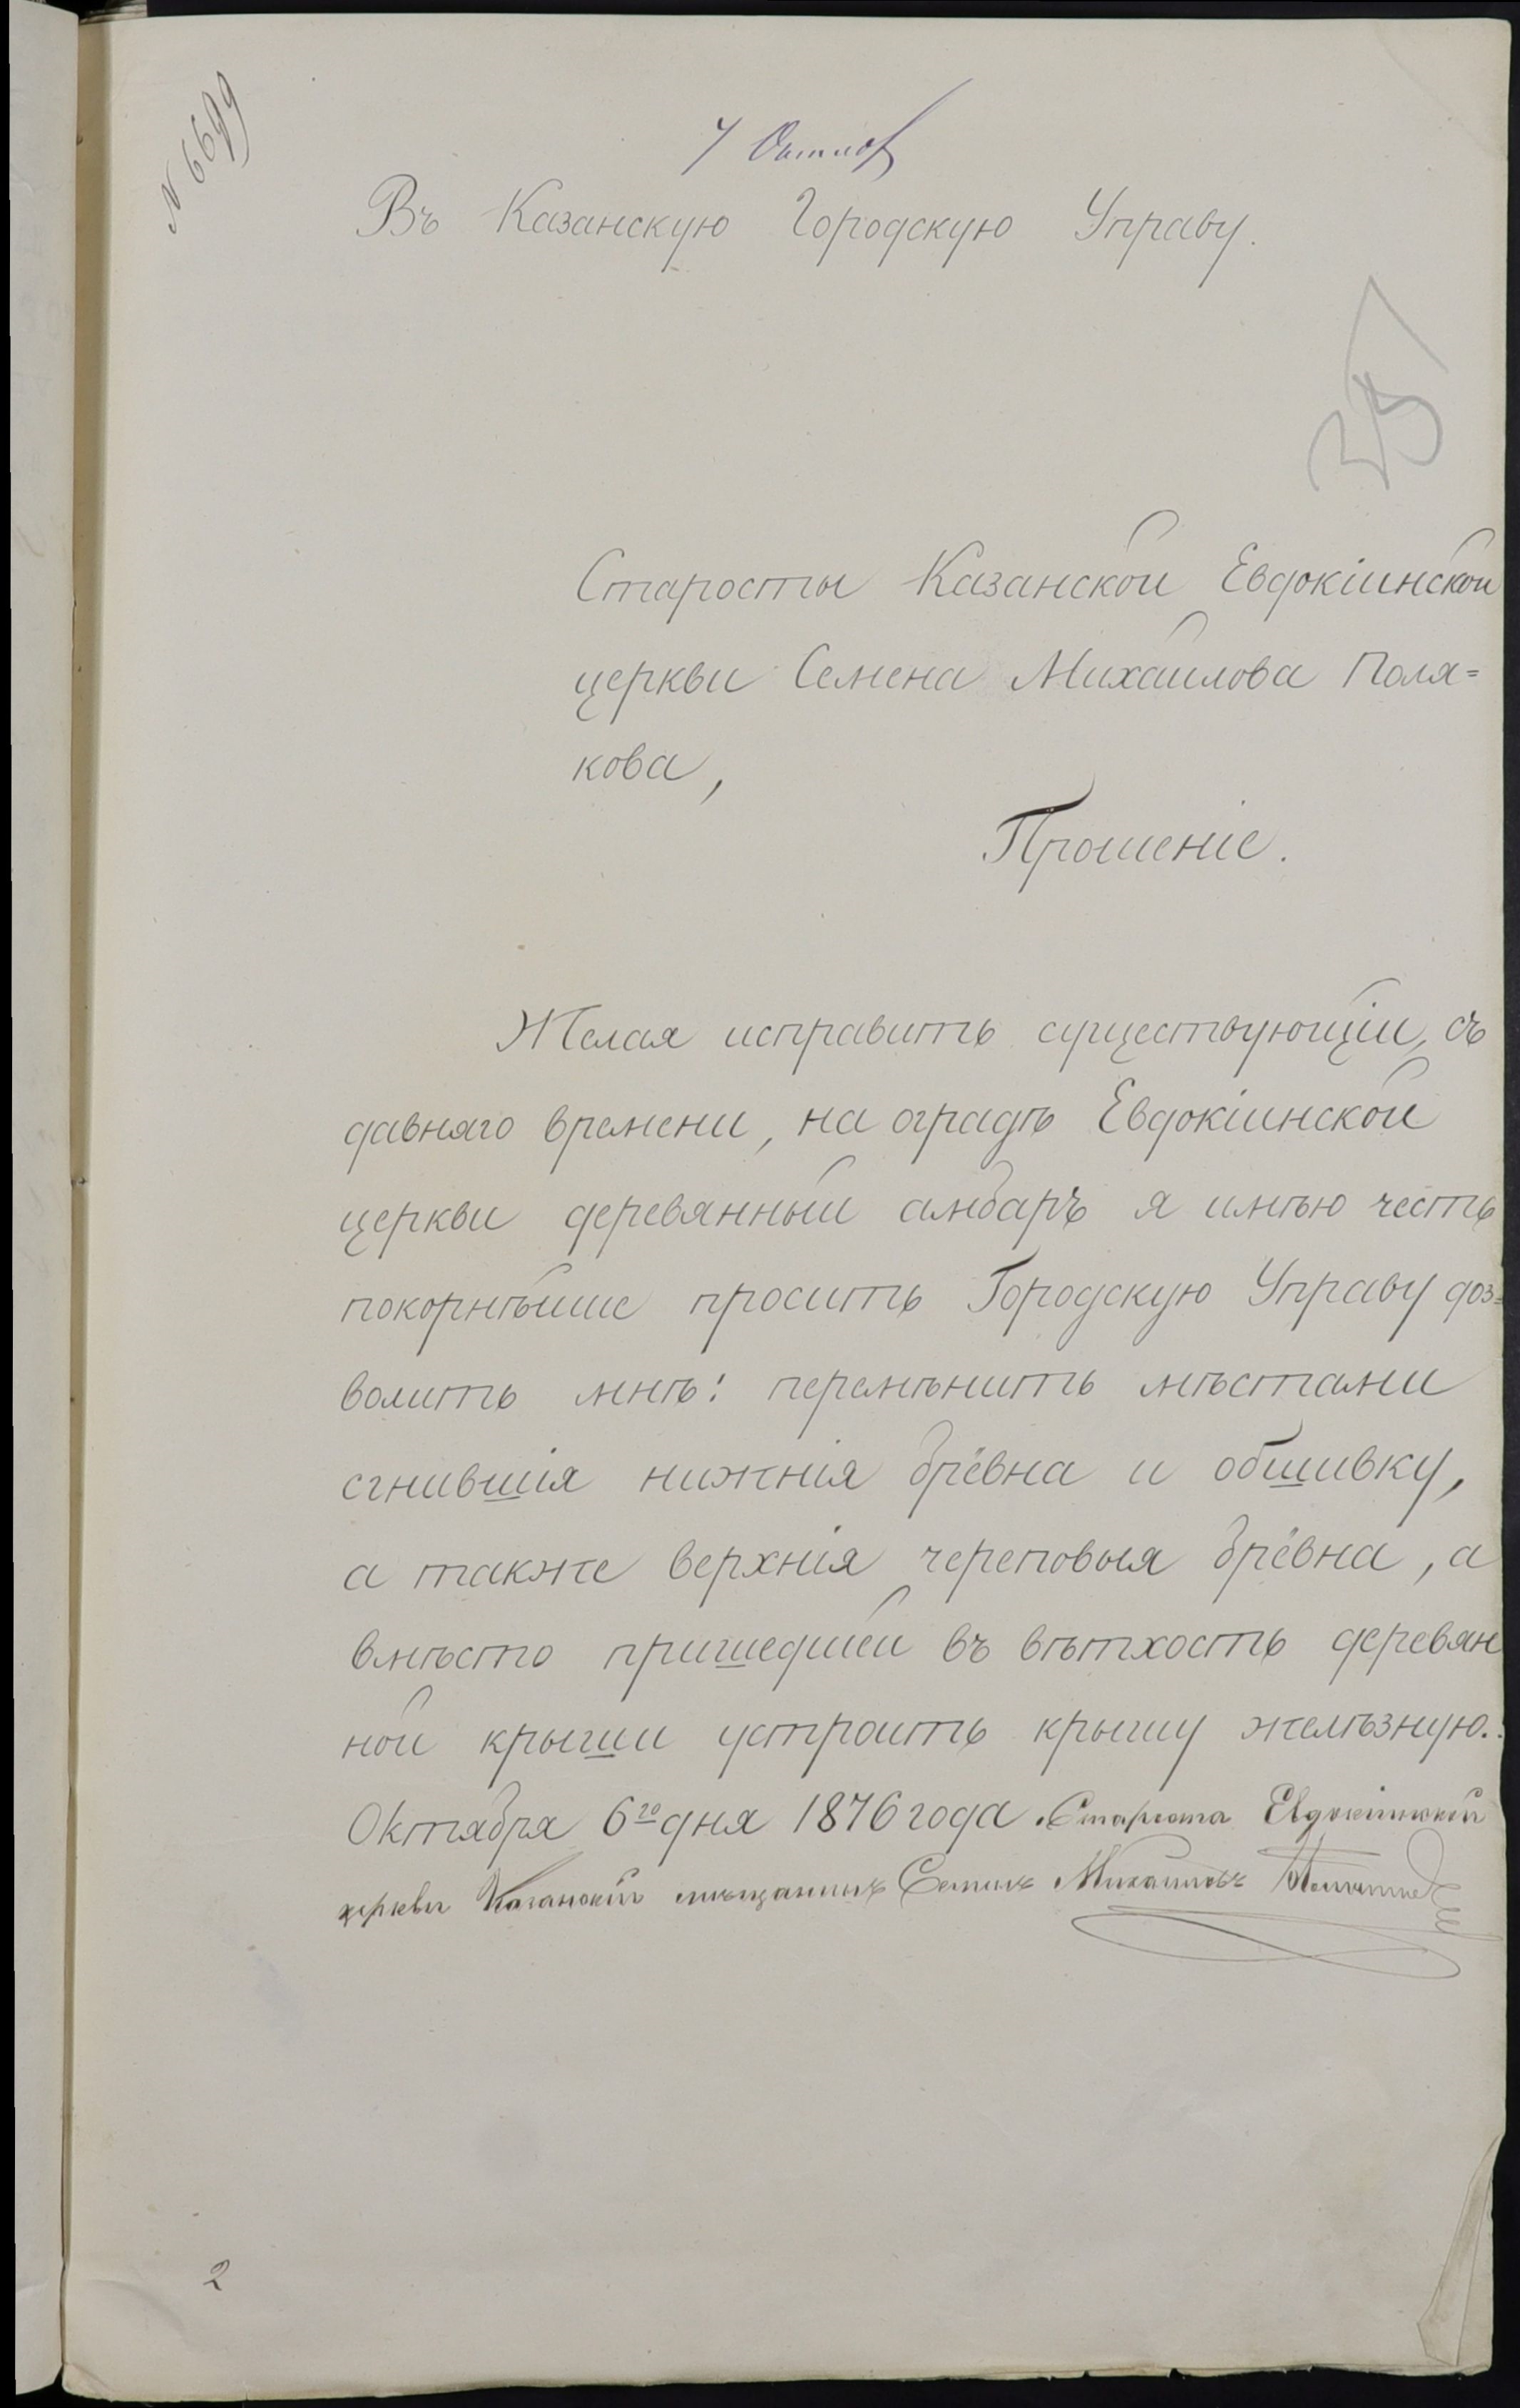 N 6699
7 Октяб
Въ Казанскую Городскую Управу.
Старосты Казанской Евдокіинской
церкви Семена Михайлова Поля=
кова,
Прошеніе.
Желая исправить существующій, съ
давняго времени, на оградѣ Евдокіинской
церкви деревянный амбаръ я имѣю честь
покорнѣйше просить Городскую Управу доз=
волить мнѣ: перемѣнить мѣстами
сгнившія нижнія брёвна и обшивку,
а также верхнія череповыя брёвна, а
вмѣсто пришедшей въ вѣтхость деревян
ной крыши устроить крышу желѣзную.
Октября 6го дня 1876 года. Староста Евдокіинской
церкви Казанскій мѣщанинъ Семенъ Михайловъ
2